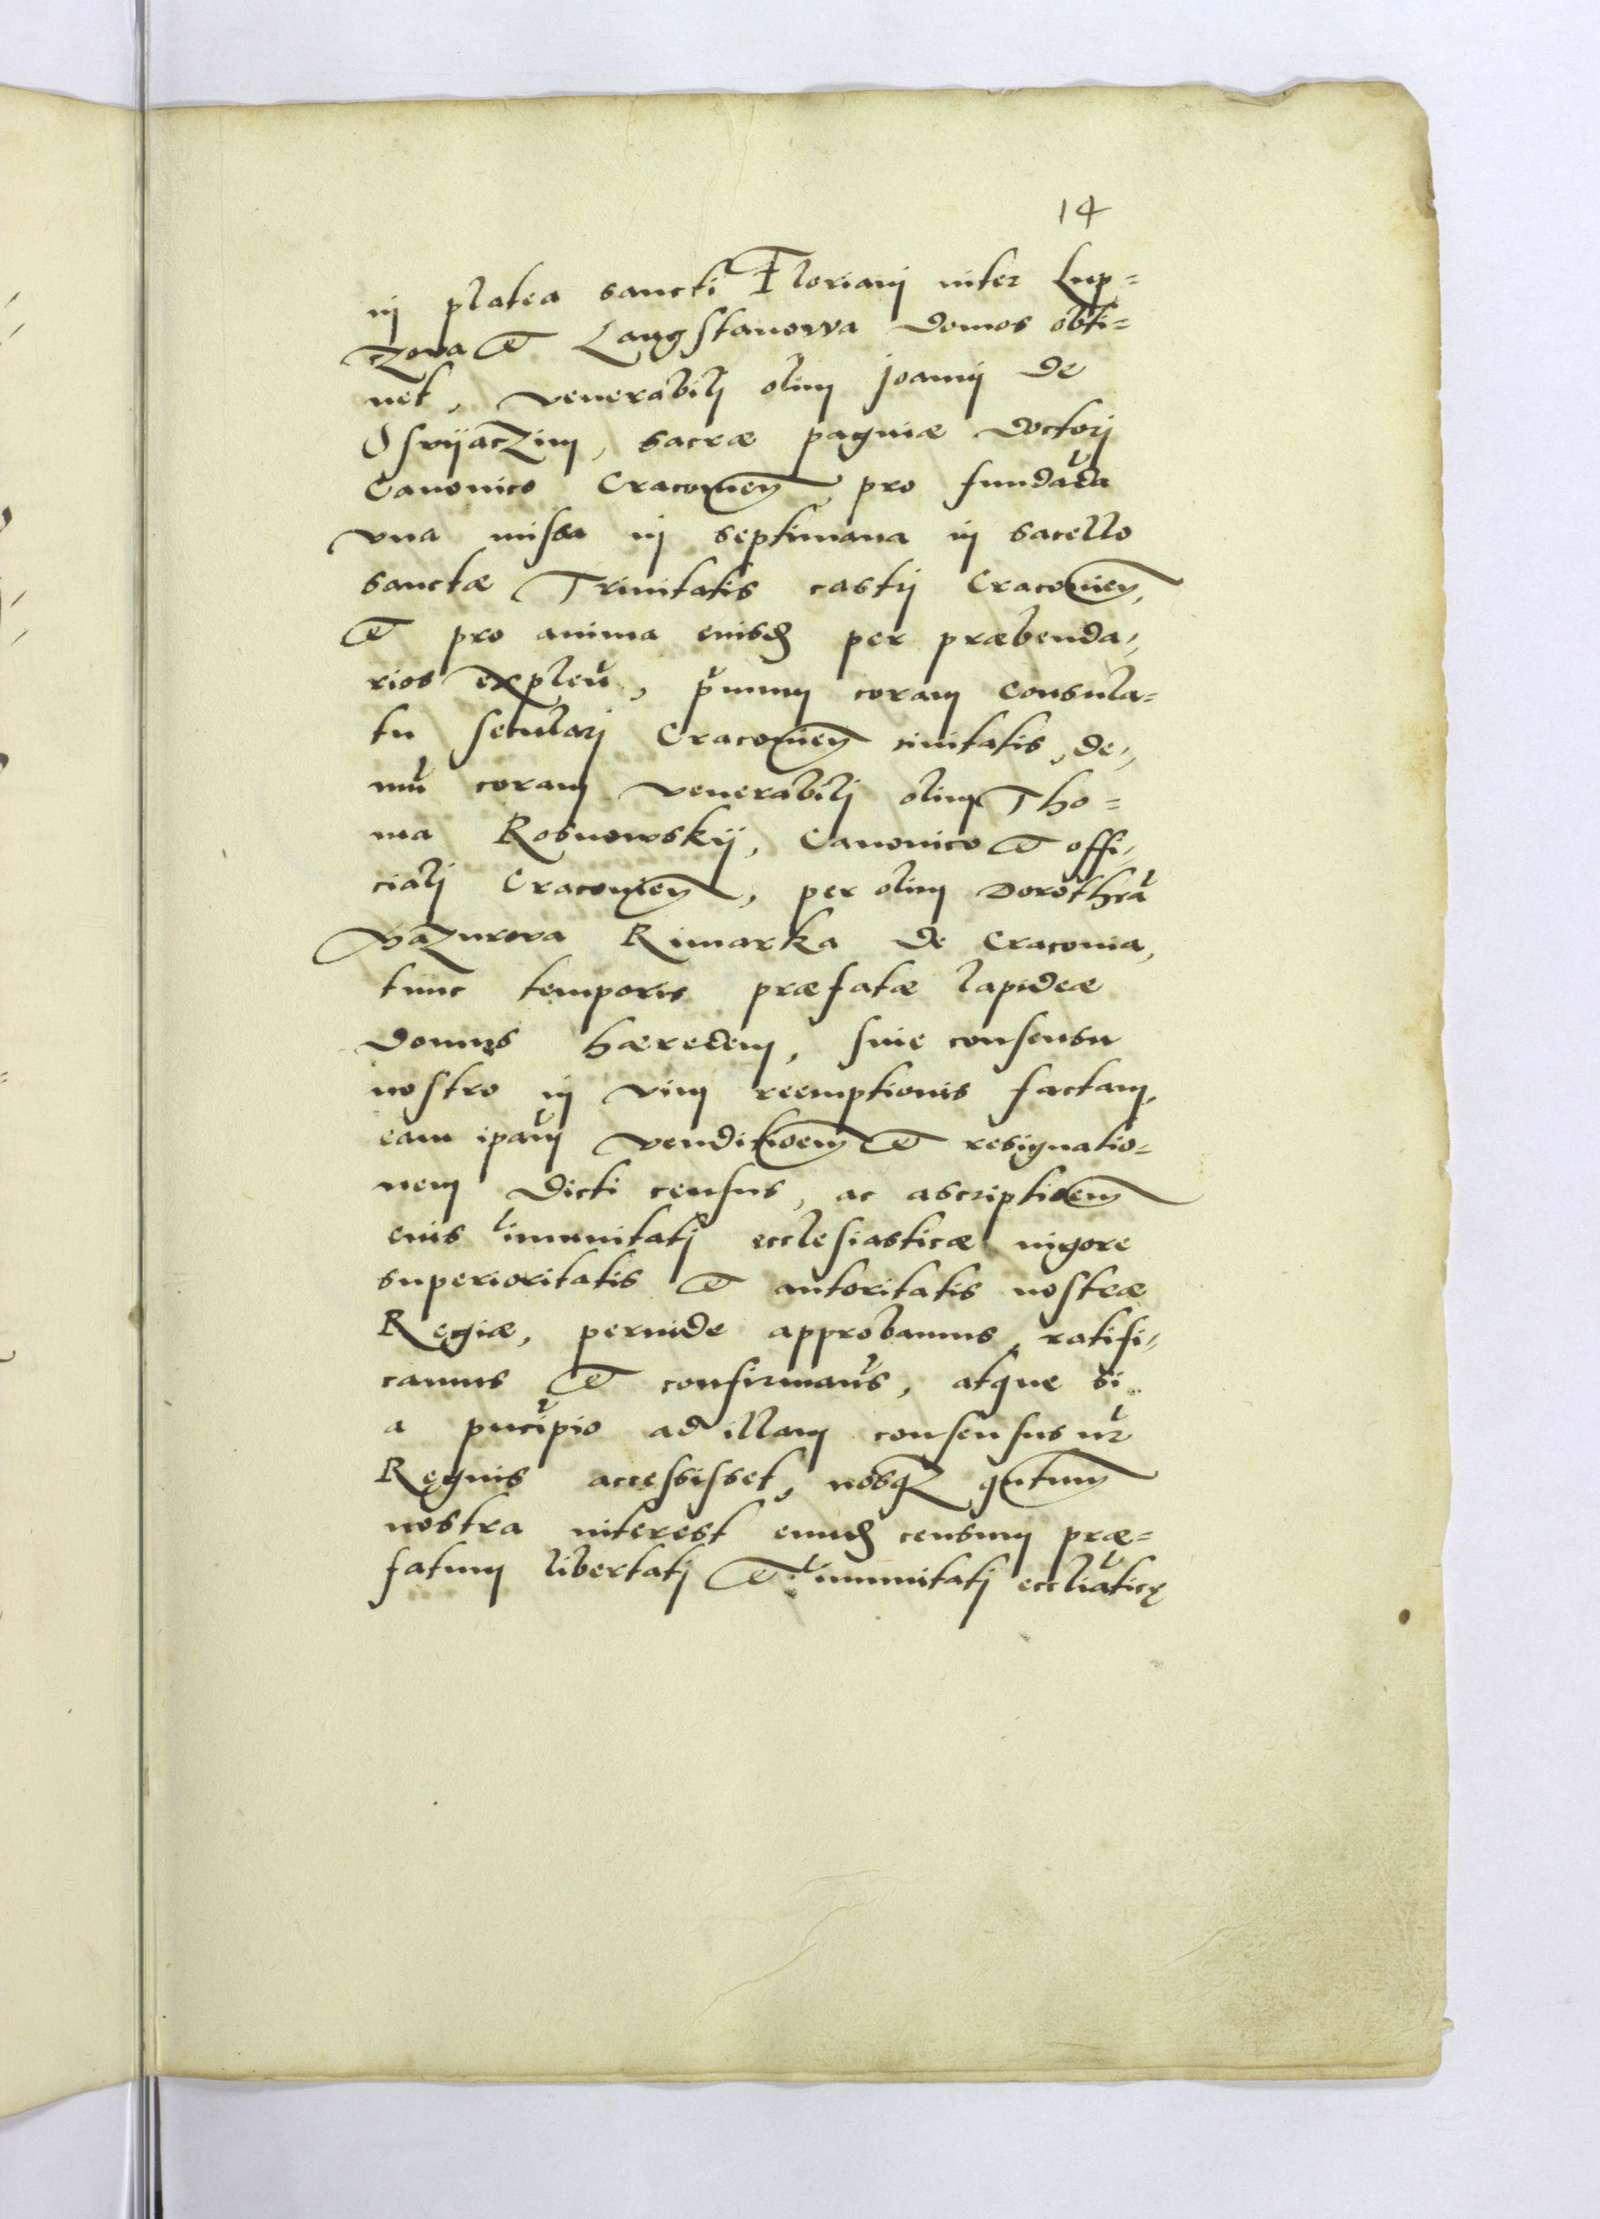 14
in platea sancti Floriani inter Lup=
czowa et Langstanowa domos obti=
net, venerabili olim Joanni de
Osvijaczim, sacræ paginæ doctori
Canonico Cracovien̄ pro fundāda
vna missa in septimana in sacello
sanctæ Trinitatis castri Cracovien̄,
et pro anima eiusd̄ per præbenda,
rios explen̄, p̄mum coram Consula=
tu seculari Cracovien̄ civitatis, de,
mū coram venerabili olim Tho=
ma Rosnowskij, Canonico et offi,
ciali Cracovien̄, per olim Dorotheā
Mazurowa Rimarka de Cracovia,
tunc temporis præfatæ lapideæ
domus hæredem, sine consensu
nostro in vim reemptionis factam,
eam ip̄am venditioēm et resignatio=
nem dicti census, ac ascriptioēm
eius im̄unitati ecclesiasticæ vigore
superioritatis et autoritatis nostræ
Regiæ, perinde approbamus, ratifi,
camus et confirmam̄s, atque si
a pn̄cipio ad illam consensus nr̄
Regius accessisset, nosq̄ qn̄tum
nostra interest eund̄ censum præ=
fatum libertati et im̄unitati ecclīaticę